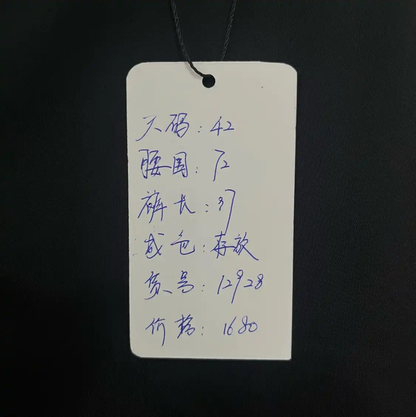 尺码:42
腰围:72
裤长:37
成色:存放
货号:12928
价格:1680